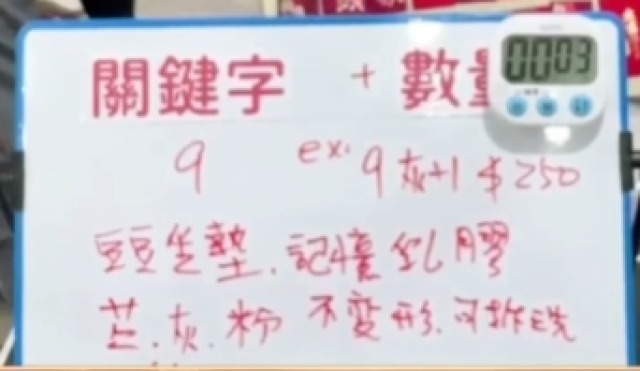 關鍵字 + 數量
00:03
9 ex. 9灰+1 $250
豆豆坐墊. 記憶乳膠
灰. 粉 不变形. 可拆洗